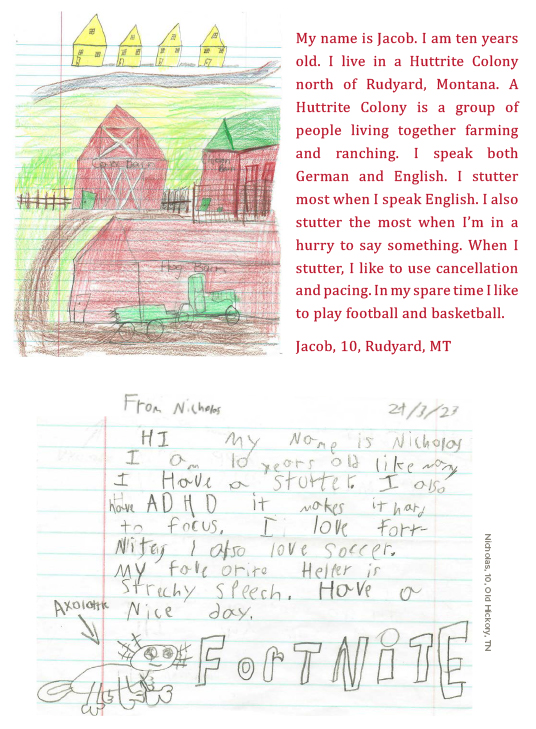 My name is Jacob. I am ten years
old. I live in a Huttrite Colony
north of Rudyard, Montana. A
Huttrite Colony is a group of
people living together farming
and ranching. I speak both
German and English. I stutter
most when I speak English. I also
stutter the most when I'm in a
hurry to say something. When I
stutter, I like to use cancellation
and pacing. In my spare time I like
to play football and basketball.
Jacob, 10, Rudyard, MT
Hog Barn
From Nicholas
HI my Name is Nicholas
I am 10 years old like many
I Have a stutter. I also
have ADHD it makes it hard
to focus, I love Fort-
Nite, I also love soccer.
my favorite Helper is
Strechy Speech. Have a
Nice day.
Axolotl
FORTNITE
Nicholas, 10, Old Hickory, TN